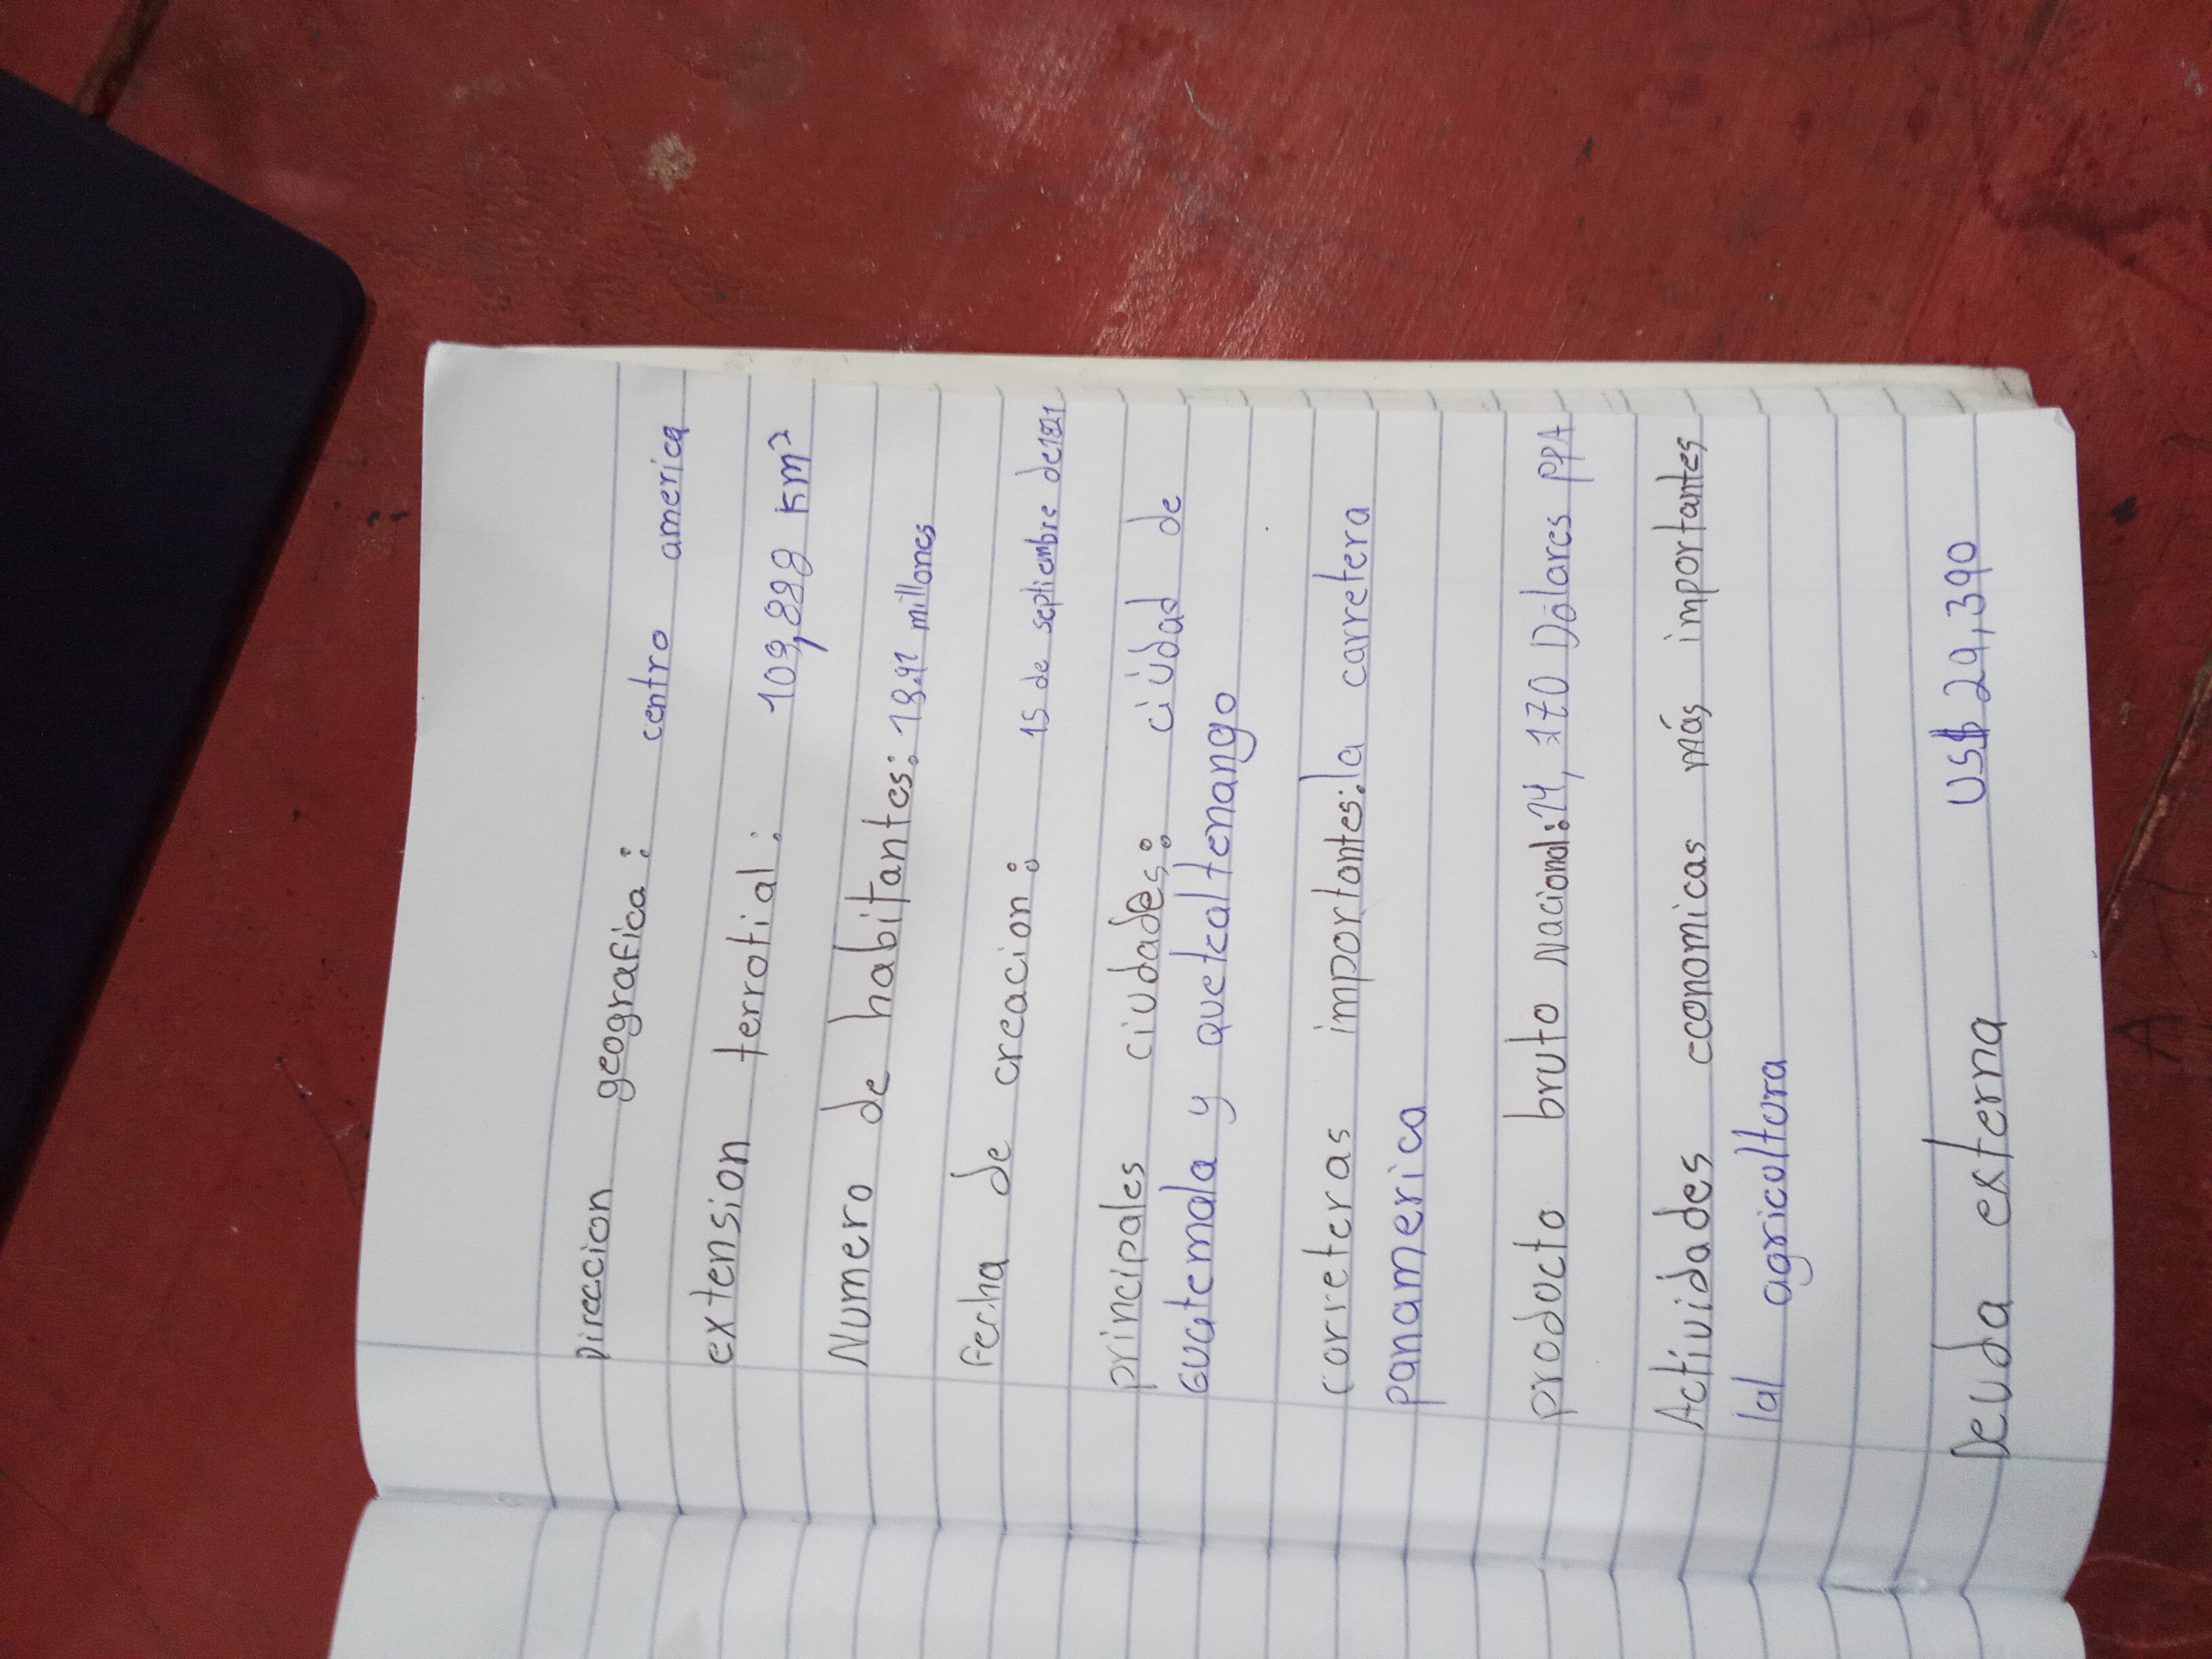 Direccion geografica: centro america
extension terrotial: 109,888 km²
Numero de habitantes: 18.47 millones
Fecha de creacion: 15 de septiembre de 1821
principales ciudades: ciudad de
Guatemala y quetzaltenango
Correteras importantes: la carretera
panamerica
producto bruto Nacional: 14,170 Dolares PPA
Actividades economicas más importantes
lal agricultura
Deuda externa US$ 29,390